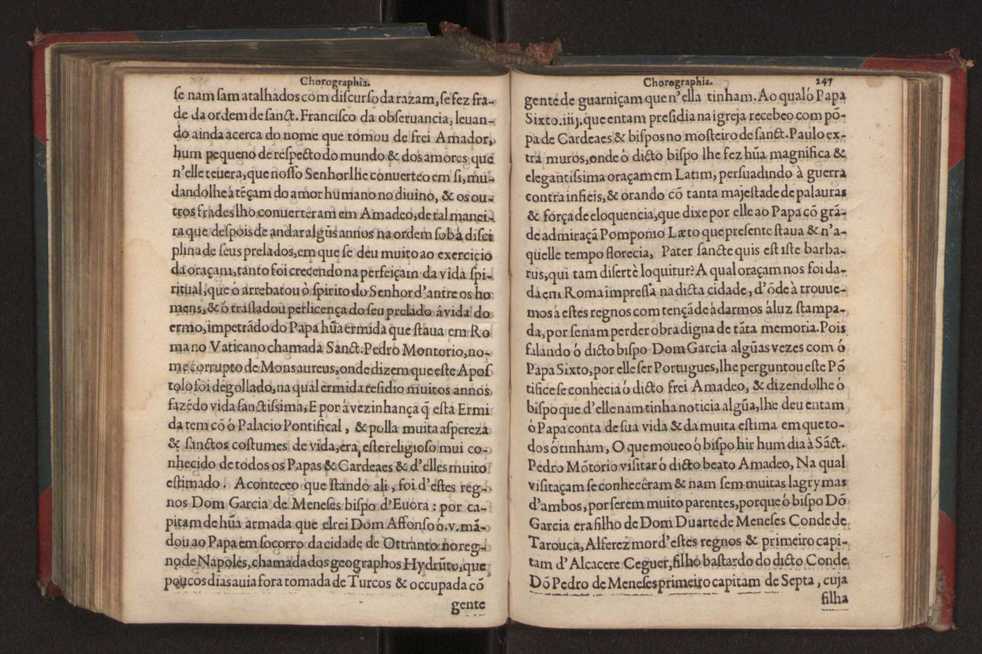 Chorographia.
se nam sam atalhados com discurso da razam, se fez fra-
de da ordem de sanct. Francisco da obseruancia, leuan-
do ainda acerca do nome que tomou de frei Amador,
hum pequeno de respecto do mundo & dos amores que
n'elle teuera, que nosso Senhor lhe conuerteo em si, mu-
dandolhe à tẽçam do amor humano no diuino, & os ou-
tros frades lho conuertéram em Amadeo, de tal manei-
ra que despois de andar algũs annos na ordem sob à disci
plina de seus prelados, em que se deu muito ao exercicio
da oraçam, tanto foi crecendo na perfeiçam da vida spi-
ritual, que ò arrebatou ò spirito do Senhor d'antre os ho
mens, & ò trasladou per licença do seu prelado à vida do
ermo, impetrãdo do Papa hũa ermida que staua em Ro
ma no Vaticano chamada Sanct. Pedro Montorio, no-
me corrupto de Monsaureus, onde dizem que este Apos
tolo foi degollado, na qual ermida residio muitos annos
fazẽdo vida sanctissima, E por à vezinhança q̃ esta Ermi
da tem cõ ò Palacio Pontifical, & polla muita aspereza
& sanctos costumes de vida, era este religioso mui co-
nhecido de todos os Papas & Cardeaes & d'elles muito
estimado. Aconteceo que stando ali, foi d'estes reg-
nos Dom Garcia de Meneses bispo d'Euora: por ca-
pitam de hũa armada que elrei Dom Affonso ò.v. mã-
dou ao Papa em socorro da cidade de Ottranto no reg-
no de Napoles, chamada dos geographos Hydrũto, que
poucos dias auia fora tomada de Turcos & occupada cõ
gente
Chorographia. 247
gente de guarniçam que n'ella tinham. Ao qual ò Papa
Sixto.iiij. que entam presidia na igreja recebeo com põ-
pa de Cardeaes & bispos no mosteiro de sanct. Paulo ex-
tra muros, onde ò dicto bispo lhe fez hũa magnifica &
elegantissima oraçam em Latim, persuadindo à guerra
contra infieis, & orando cõ tanta majestade de palauras
& fórça de eloquencia, que dixe por elle ao Papa cõ grã-
de admiraçã Pomponio Læto que presente staua & n'a-
quelle tempo florecia, Pater sancte quis est iste barba-
rus, qui tam disertè loquitur? A qual oraçam nos foi da-
da em Roma impressa na dicta cidade, d'õde à trouue-
mos à estes regnos com tençã de à darmos à luz stampa-
da, por se nam perder obra digna de tãta memoria. Pois
falando ò dicto bispo Dom Garcia algũas vezes com ò
Papa Sixto, por elle ser Portugues, lhe perguntou este Põ
tifice se conhecia ò dicto frei Amadeo, & dizendolhe ò
bispo que d'elle nam tinha noticia algũa, lhe deu entam
ò Papa conta de sua vida & da muita estima em que to-
dos ò tinham, O que moueo ò bispo hir hum dia à Sãct.
Pedro Mõtorio visitar ò dicto beato Amadeo, Na qual
visitaçam se conhecêram & nam sem muitas lagrymas
d'ambos, por serem muito parentes, porque ò bispo Dõ
Garcia era filho de Dom Duarte de Meneses Conde de
Tarouca, Alferez mor d'estes regnos & primeiro capi-
tam d'Alcacere Ceguer, filho bastardo do dicto Conde
Dõ Pedro de Meneses primeiro capitam de Septa, cuja
filha